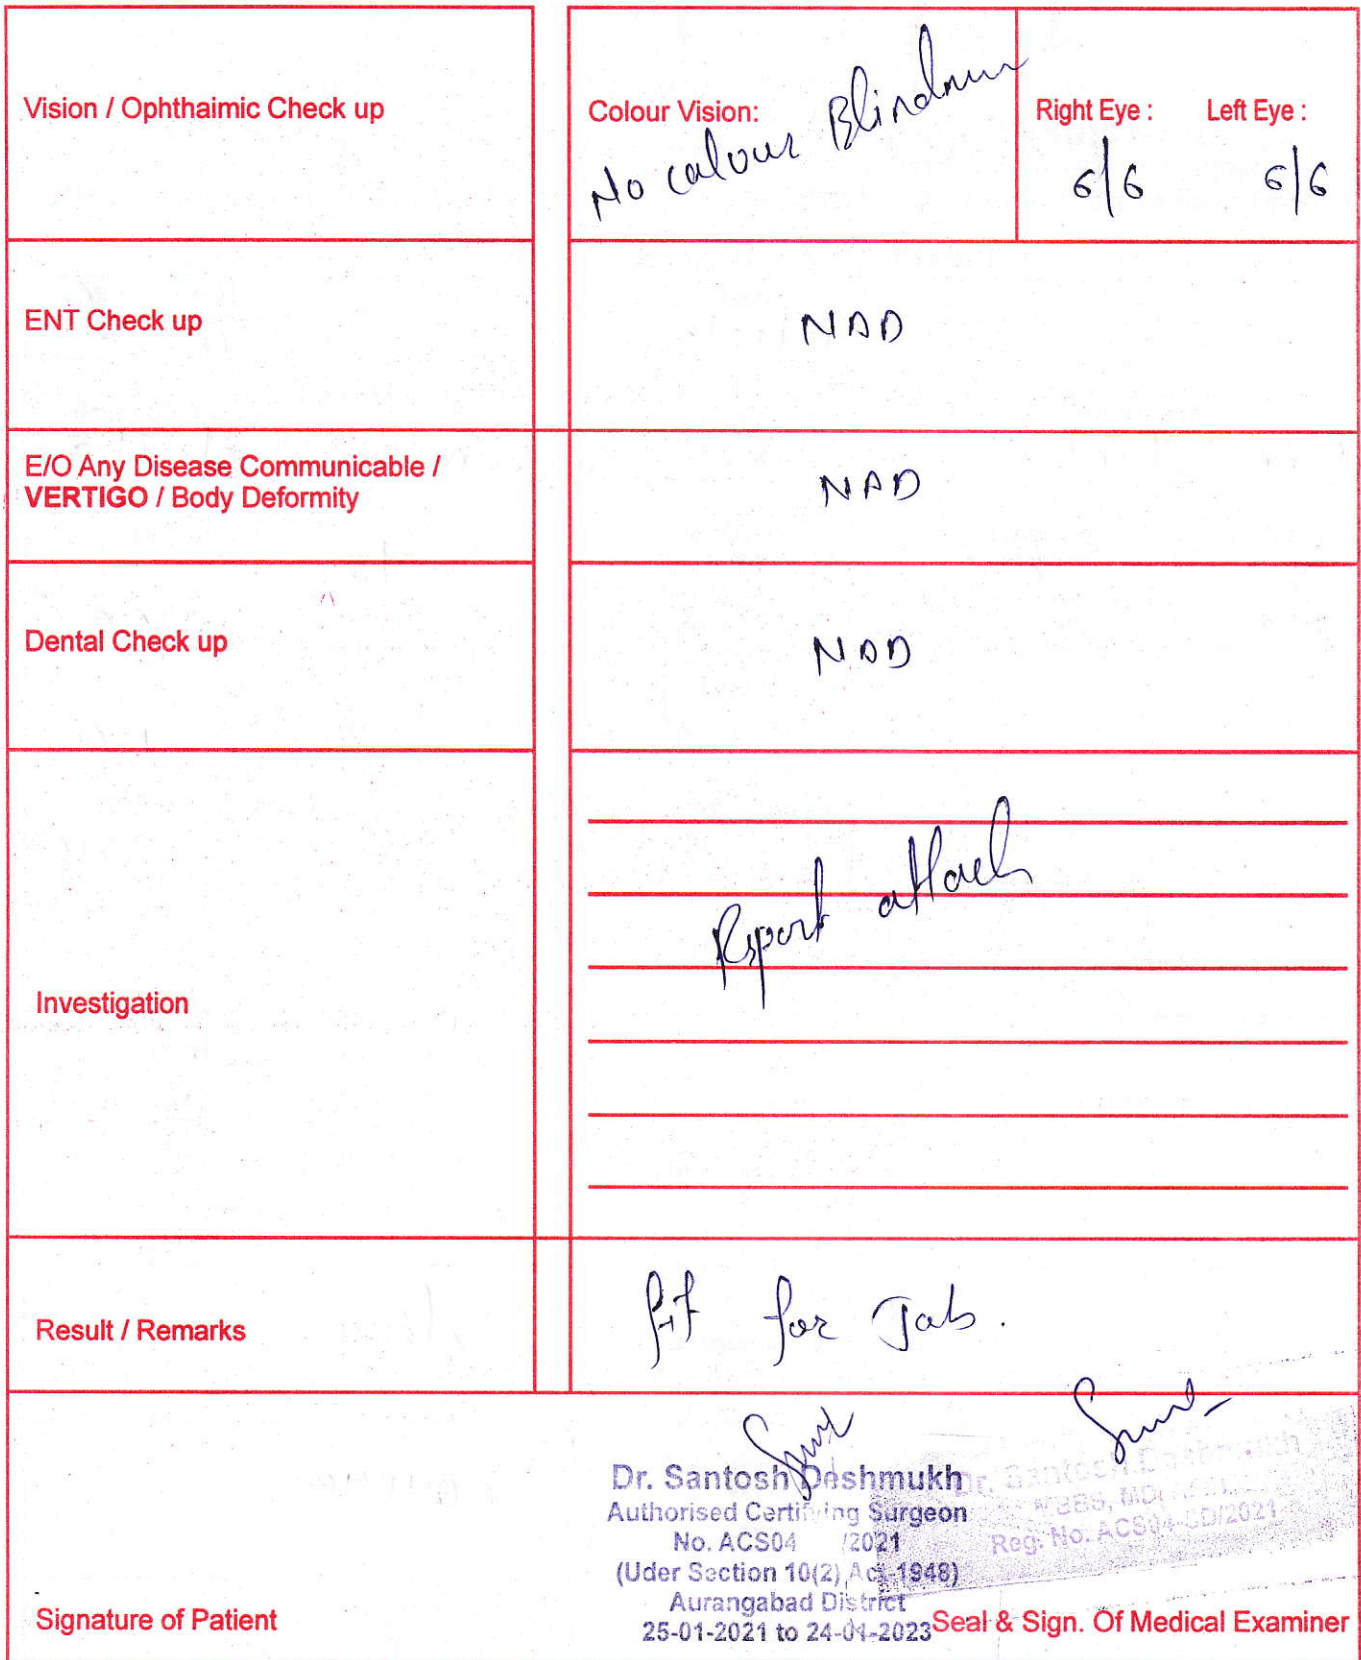 Vision / Ophthaimic Check up
Colour Vision:
No calour Blindness
Right Eye : Left Eye :
6/6 6/6
ENT Check up
NAD
E/O Any Disease Communicable /
VERTIGO / Body Deformity
NAD
Dental Check up
NAD
Investigation
Report attach
Result / Remarks
fit for Job.
Dr. Santosh Deshmukh
Authorised Certifying Surgeon
No. ACS04 /2021
(Uder Section 10(2) Act-1948)
Aurangabad District
25-01-2021 to 24-01-2023
Dr. Santosh Deshmukh
MBBS, MD
Reg. No. ACS04-CD/2021
Signature of Patient
Seal & Sign. Of Medical Examiner